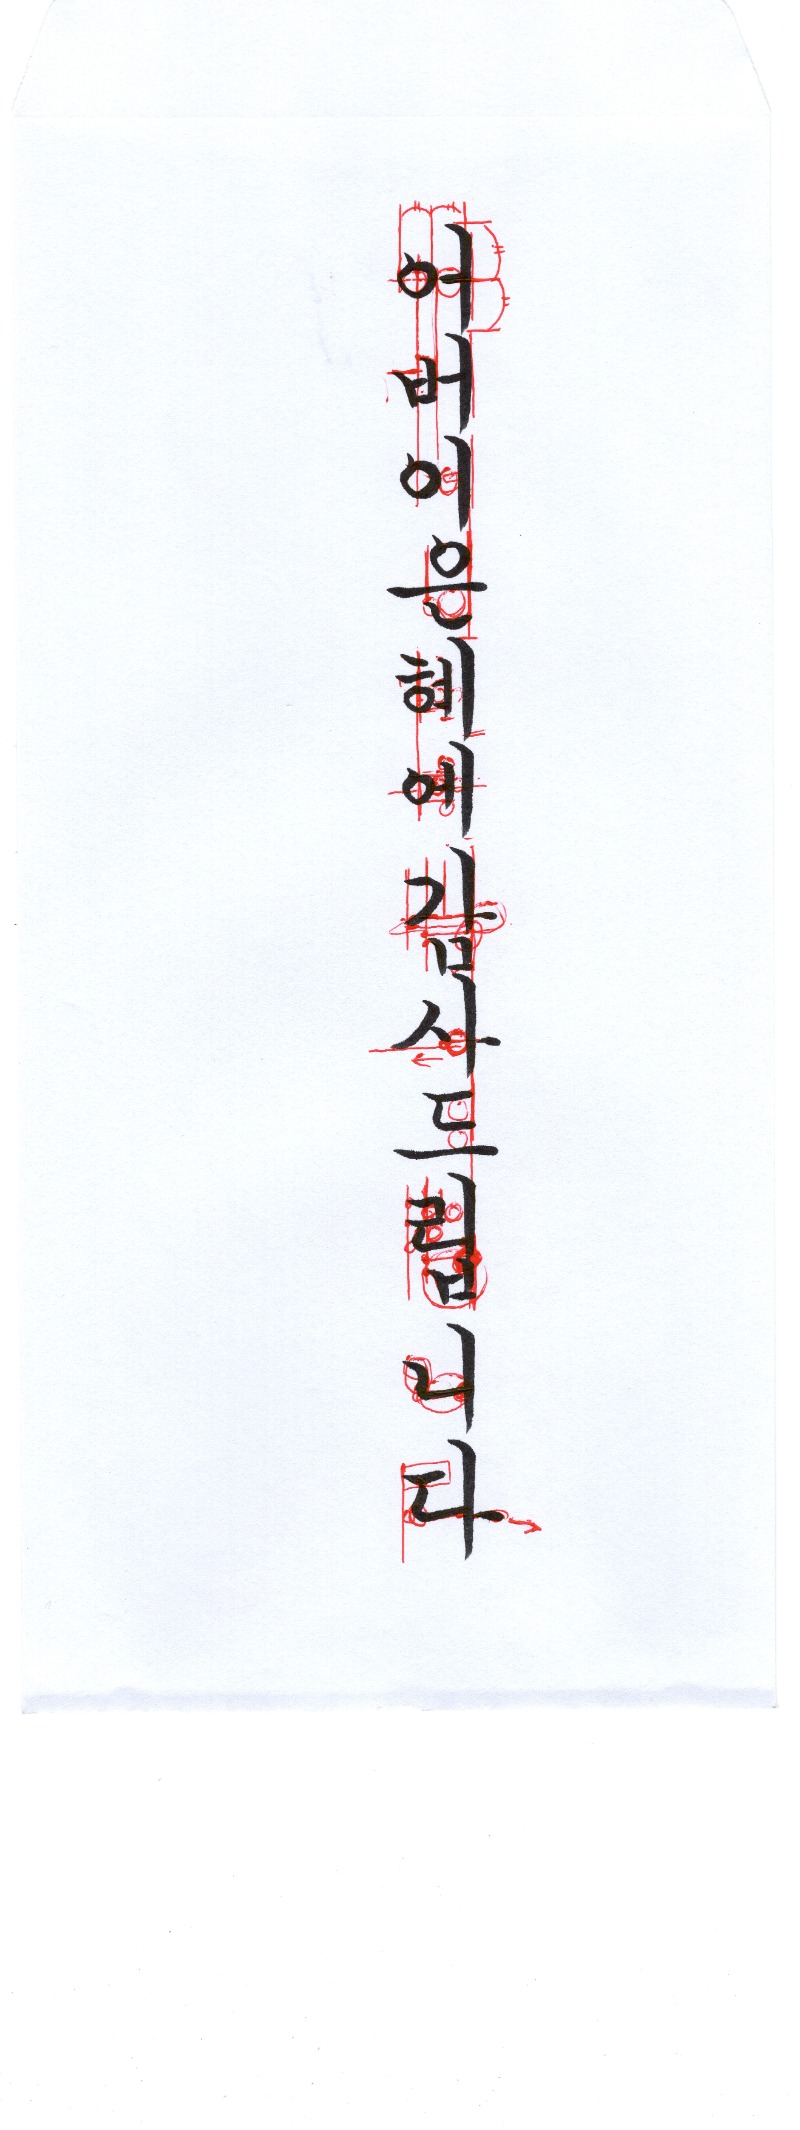 어버이은혜에감사드립니다